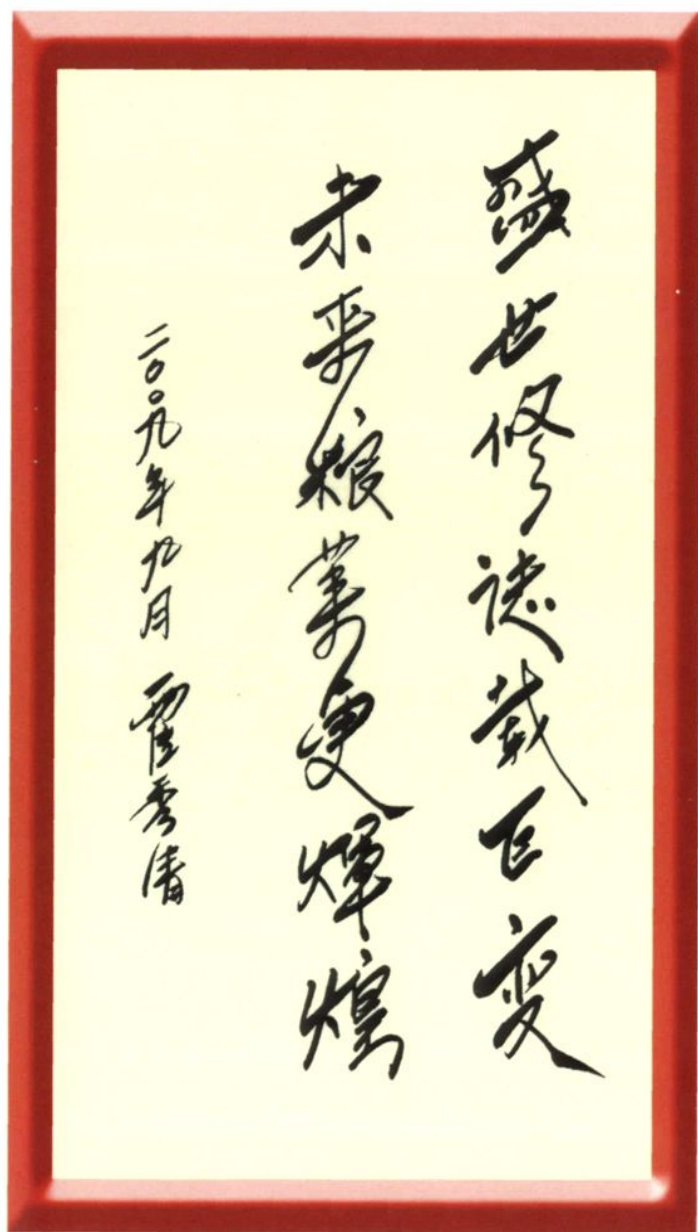 盛世修誌載巨变
未来粮業更輝煌
二〇〇九年九月 霍秀清